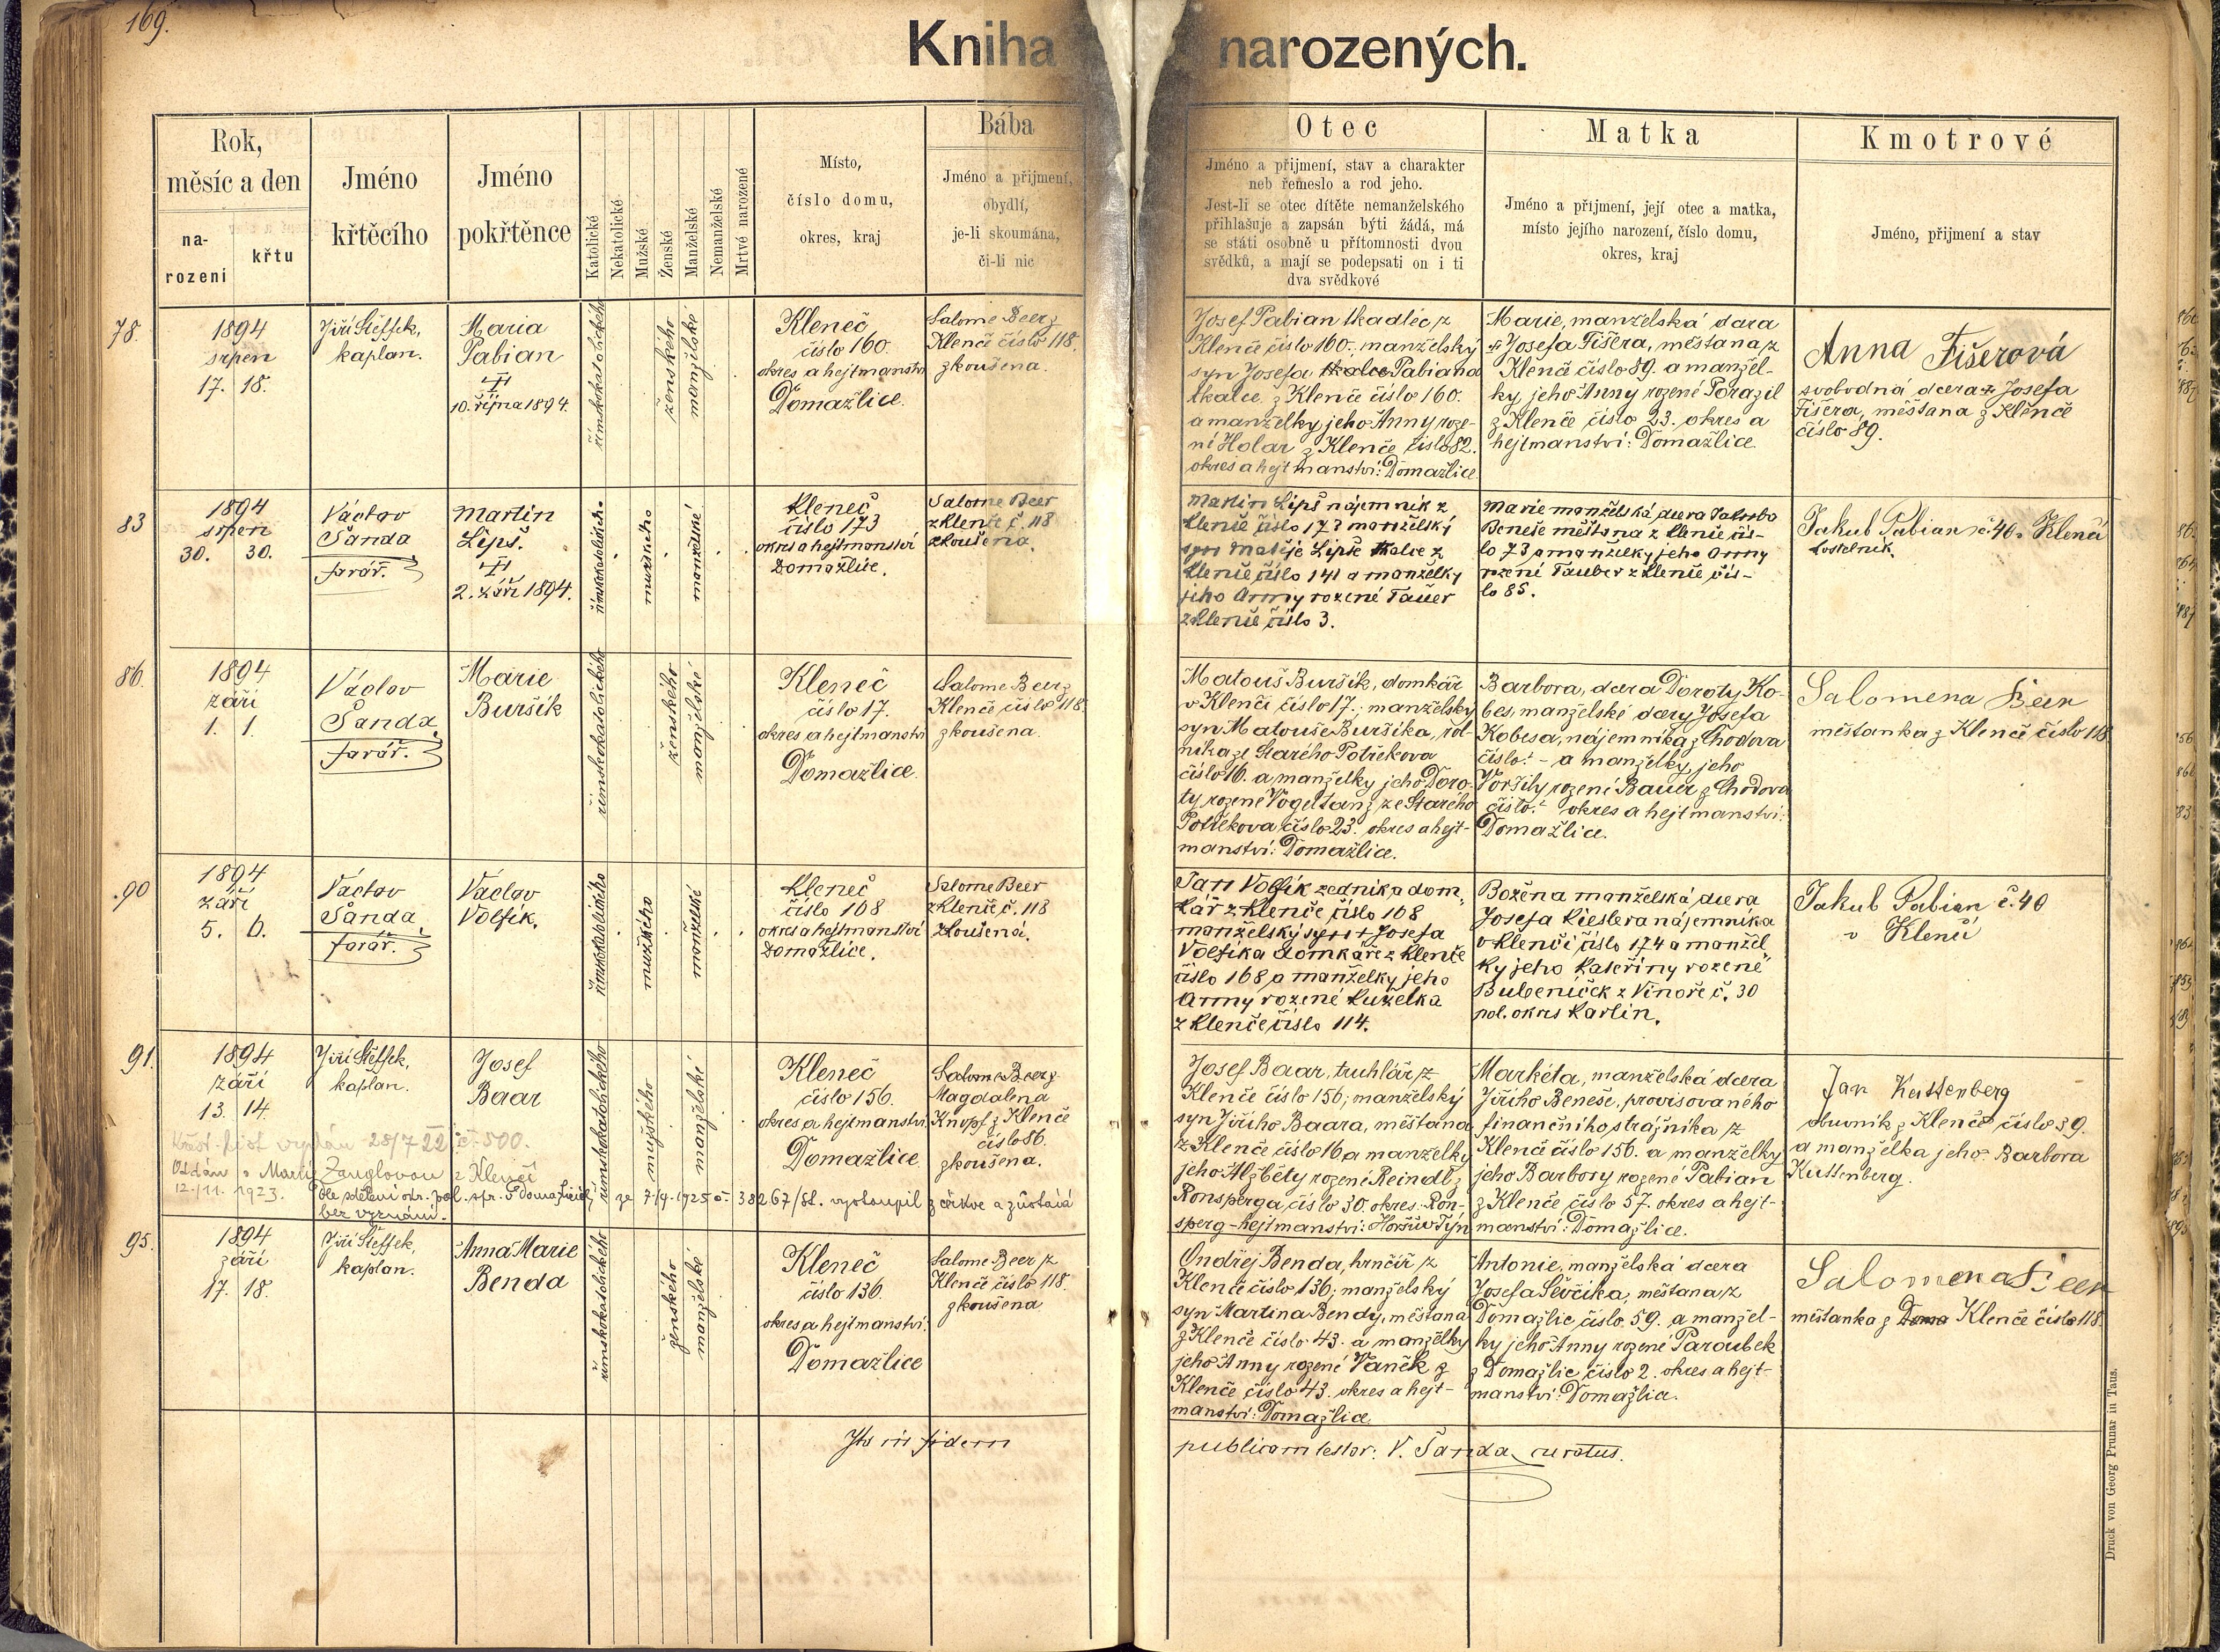 169.
Kniha narozených.
Rok,
měsíc a den
na-
rození
křtu
Jméno
křtěcího
Jméno
pokřtěnce
Katolické
Nekatolické
Mužské
Ženské
Manželské
Nemanželské
Mrtvé narozené
Místo,
číslo domu,
okres, kraj
Bába
Jméno a přijmení,
obydlí,
je-li skoumána,
či-li nic
Otec
Jméno a přijmení, stav a charakter
neb řemeslo a rod jeho.
Jest-li se otec dítěte nemanželského
přihlašuje a zapsán býti žádá, má
se státi osobně u přítomnosti dvou
svědků, a mají se podepsati on i ti
dva svědkové
Matka
Jméno a přijmení, její otec a matka,
místo jejího narození, číslo domu,
okres, kraj
Kmotrové
Jméno, přijmení a stav
78.
1894
srpen
17. 18.
Jiří Šteffek,
kaplan.
Maria
Pabian
10. října 1894.
římskokatolického
ženského
manželské
Kleneč
číslo 160.
okres a hejtmanství
Domažlice.
Salome Beer z
Klenče číslo 118.
zkoušena.
Josef Pabian tkadlec z
Klenče číslo 160.; manželský
syn Josefa tkalce Pabiana
tkalce z Klenče číslo 160.
a manželky jeho Anny roze-
né Holar z Klenče číslo 82.
okres a hejtmanství: Domažlice
Marie, manželská dcera
Josefa Fišera, měšťana z
Klenče číslo 89. a manžel-
ky jeho Anny rozené Porazil
z Klenče číslo 23. okres a
hejtmanství: Domažlice
Anna Fišerová
svobodná dcera Josefa
Fišera, měšťana z Klenče
číslo 89.
83
1894
srpen
30. 30.
Václav
Šanda
farář.
Martin
Lipš.
2. září 1894.
římskokatolického
mužského
manželské
Kleneč
číslo 173
okres a hejtmanství
Domažlice.
Salome Beer
z Klenče č. 118
zkoušena.
Martin Lipš nájemník z
Klenče číslo 173 manželský
syn Matěje Lipše tkalce z
Klenče číslo 141 a manželky
jeho Anny rozené Tauer
z Klenče číslo 3.
Marie manželská dcera Jakuba
Beneše měšťana z Klenče čís-
lo 73 a manželky jeho Anny
rozené Tauber z Klenče čís-
lo 85.
Jakub Pabian č 40 v Klenčí
kostelník.
86.
1894
září
1. 1.
Václav
Šanda,
farář.
Marie
Buršík
římskokatolického
ženského
manželské
Kleneč
číslo 17.
okres a hejtmanství
Domažlice.
Salome Beer z
Klenče číslo 118.
zkoušena.
Matouš Buršík, domkář
v Klenčí číslo 17.; manželský
syn Matouše Buršíka, rol-
níka ze Starého Postřekova
číslo 16. a manželky jeho Doro-
ty rozené Vogeltanz ze Starého
Postřekova číslo 23. okres a hejt-
manství: Domažlice.
Barbora, dcera Doroty Ko-
bes, manželské dcery Josefa
Kobesa, nájemníka z Chodova
číslo: - a manželky jeho
Voršily rozené Bauer z Chodova
číslo: - okres a hejtmanství:
Domažlice.
Salomena Beer
měšťanka z Klenče číslo 118.
90
1894
září
5. 6.
Václav
Šanda,
farář.
Václav
Volfík.
římskokatolického
mužského
manželské
Kleneč
číslo 168
okres a hejtmanství
Domažlice.
Salome Beer
z Klenče č. 118
zkoušená.
Jan Volfík zedník, dom-
kář z Klenče číslo 168
manželský syn + Josefa
Volfíka domkáře z Klenče
číslo 168 a manželky jeho
Anny rozené Kuželka
z Klenče číslo 114.
Božena manželská dcera
Josefa Kieslera nájemníka
v Klenčí číslo 174 a manžel-
ky jeho Kateřiny rozené
Bubeníček z Vinoře č. 30
pol. okres Karlín.
Jakub Pabian č. 40
v Klenčí
91.
1894
září
13. 14.
Jiří Šteffek,
kaplan.
Josef
Baar
římskokatolického
mužského
manželské
Kleneč
číslo 156.
okres a hejtmanství
Domažlice
Salome Beer z
Magdalena
Knopf z Klenče
číslo 86.
zkoušena.
Josef Baar, truhlář z
Klenče číslo 156; manželský
syn Jiřího Baara, měšťana
z Klenče číslo 16 a manželky
jeho Alžběty rozené Reindl z
Ronsperga, číslo 30. okres: Ron-
sperg - hejtmanství: Horšův Týn
Markéta, manželská dcera
Jiřího Beneše, provisovaného
finančního strážníka z
Klenče číslo 156. a manželky
jeho Barbory rozené Pabian
z Klenče číslo 57. okres a hejt-
manství: Domažlice.
Jan Kuttenberg
obuvník z Klenče číslo 39.
a manželka jeho: Barbora
Kuttenberg.
Křest. list vydán 28/7 22 č. 500.
Oddán s Marií Zanglovou z Klenčí
12./11. 1923. dle sdělení okr. pol. spr. v Domažlicích ze 7/9. 1925 č. 38267/st. vystoupil z církve a zůstává
bez vyznání.
95.
1894
září
17. 18.
Jiří Šteffek,
kaplan.
Anna Marie
Benda
římskokatolického
ženského
manželské
Kleneč
číslo 136.
okres a hejtmanství:
Domažlice
Salome Beer z
Klenče číslo 118.
zkoušena
Ondřej Benda, hrnčíř z
Klenče číslo 136; manželský
syn Martina Bendy, měšťana
z Klenče číslo 43. a manželky
jeho Anny rozené Vaněk z
Klenče číslo 43. okres a hejt-
manství: Domažlice.
Antonie, manželská dcera
Josefa Ševčíka, měšťana z
Domažlic číslo 59. a manžel-
ky jeho Anny rozené Paroubek
z Domažlic číslo 2. okres a hejt-
manství: Domažlice.
Salomena Beer
měšťanka z Klenče číslo 118.
Ita in fidem publicam testor: V. Šanda, curatus.
Druck von Georg Prunar in Taus.